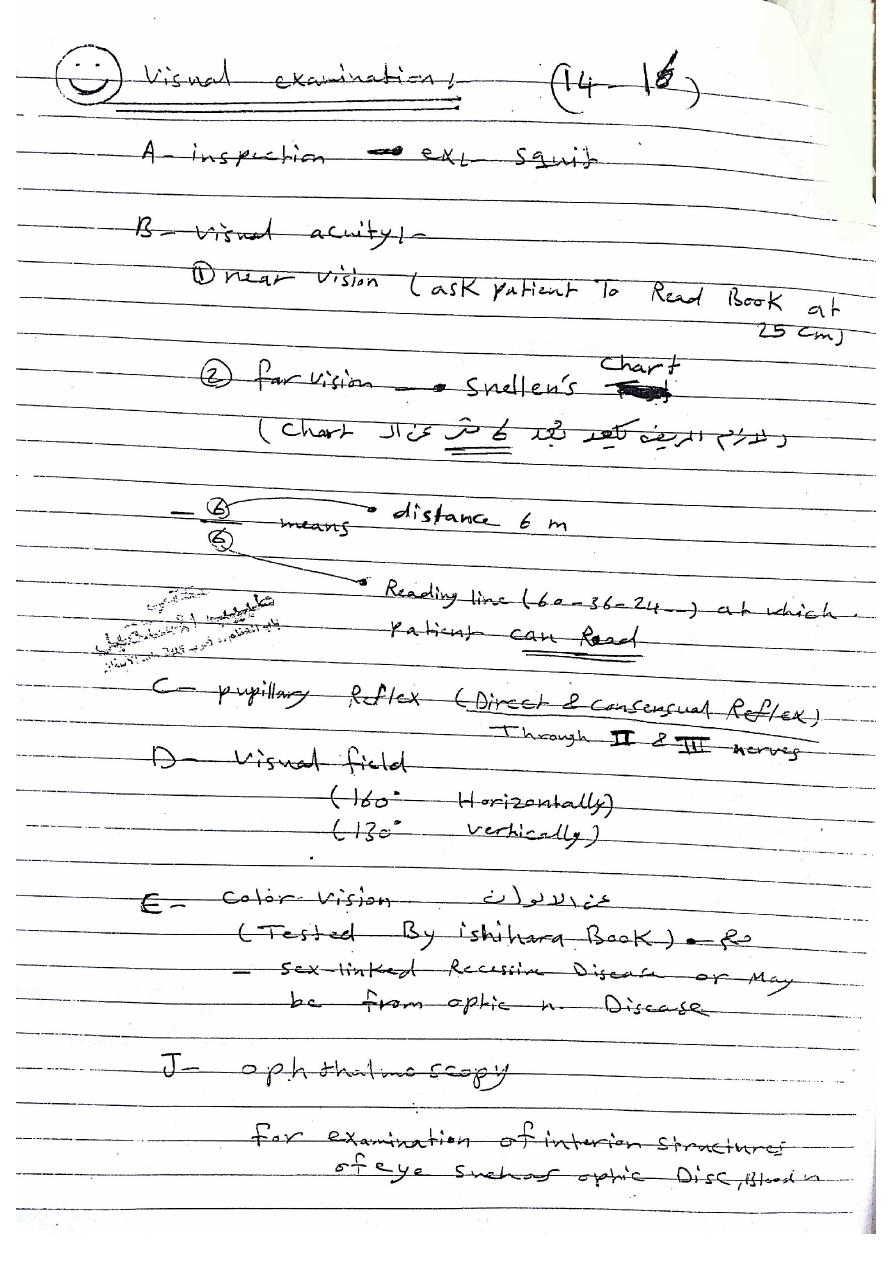 Visual examination:
(14-16)
A- inspection → ex:- Squit
B- Visual acuity:-
① near vision (ask patient To Read Book at
25 cm)
② far vision → Snellen's Chart
(لازم المريض يكعد بُعد ٦ متر عن الـ Chart)
- 6/6 means → distance 6 m
→ Reading line (60-36-24--) at which
patient can Read
C- pupillary Reflex (Direct & consensual Reflex)
Through II & III nerves
D- Visual field
(160° Horizontally)
(130° vertically)
E- Color Vision عن الالوان
(Tested By ishihara Book)
- sex-linked Recessive Disease or May
be from optic n. Disease
J- ophthalmoscopy
for examination of interior structures
of eye such as optic Disc, Blood n